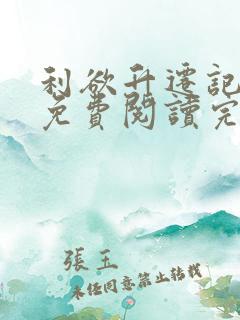 利欲升遷記
免費閱讀完
張玉
未經同意禁止轉載